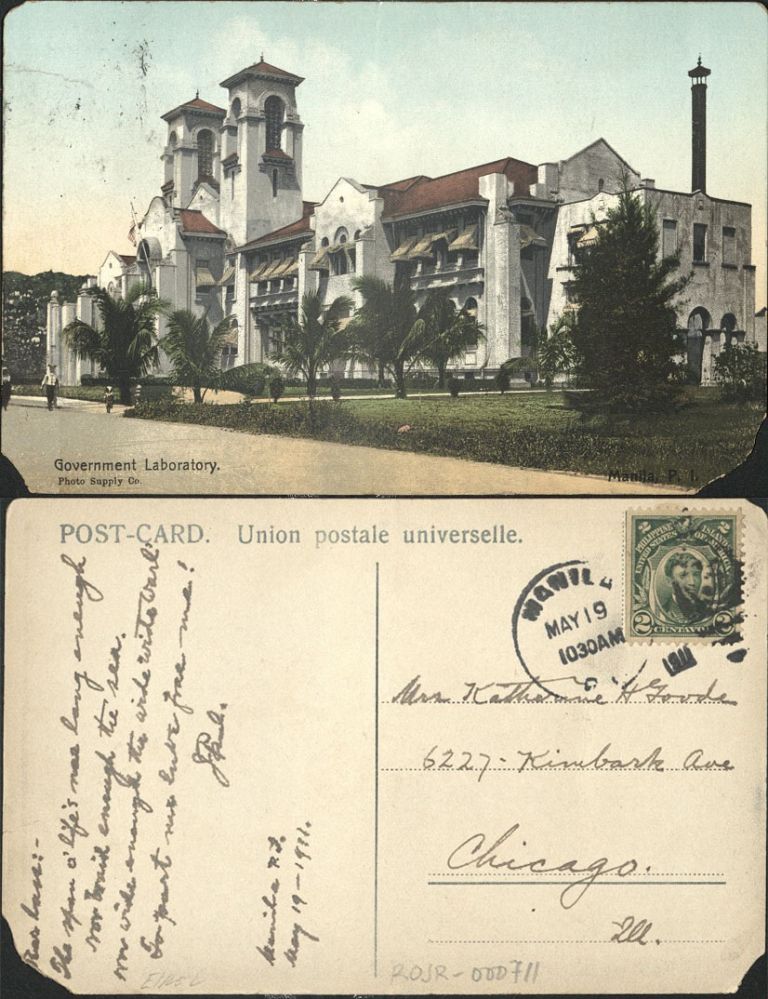 Government Laboratory.
Photo Supply Co.
Manila, P. I.
POST-CARD. Union postale universelle.
Dear lass:-
The span o' life's nae lang enough
nor braid enough the sea.
nor wide enough the wide wide warl'
To part my luve frae me!
J Paul.
Manila P.I.
May 19-1911.
PHILIPPINE ISLANDS
UNITED STATES OF AMERICA
2 CENTAVOS 2
MANILA
MAY 19
1030AM
1911
Mrs Katherine H Goode
6227- Kimbark Ave
Chicago.
Ill.
ROJR-000711